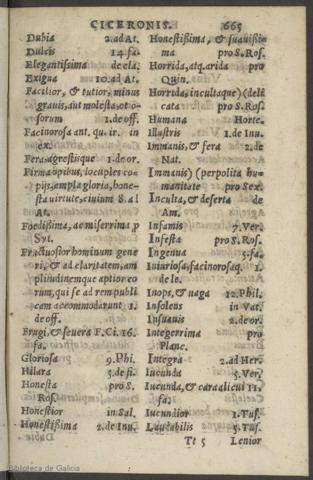 CICERONIS. 665
Dubia 2.ad At.
Dulcis 14.fa.
Elegantissima de cla.
Exigua 10.ad At.
Facilior, & tutior, minus
grauis, aut molesta, otio
sorum 1.de off.
Facinorosa ant. qu. ir. in
ex.
Fera, agrestiique 1.de or.
Firma opibus, locuples co
pijs, ampla gloria, hone-
sta uirtute, ciuium 8.al
At.
Foedissima, ac miserrima p
Syl.
Fructuosior hominum gene
ri, & ad claritatem, am
plitudinemque aptior eo
rum, qui se ad rempubli
cam accommodarunt 1.
de off.
Frugi, & seuera F. Ci. 16.
fa.
Gloriosa 9.Phi.
Hilara 5.de fi.
Honesta pro S.
Ros.
Honestior in Sal.
Honestissima 2.de Inu.
Honestissima, & suauissi-
ma pro S. Ros.
Horrida, atq. arida pro
Quin.
Horrida, incultaque) (deli
cata pro S. Ros.
Humana Horte.
Illustris 1.de Inu.
Immanis, & fera 2.de
Nat.
Immanis) (perpolita hu-
manitate pro Sex.
Inculta, & deserta de
Am.
Infamis 7.Ver.
Infesta pro S. Ros.
Ingenua 5.fa.
Iniuriosa, facinorosaq. 1.
de le.
Inops, & uaga 12.Phil.
Insolens in Vat.
Insuauis 2.de or.
Integerrima pro
Planc.
Integra 2.ad Her.
Iucunda 5.Ver.
Iucunda, & cara alicui 11.
fa.
Iucundior 1.Tus.
Laudabilis 5.Tus.
Tt 5 Lenior
Biblioteca de Galicia